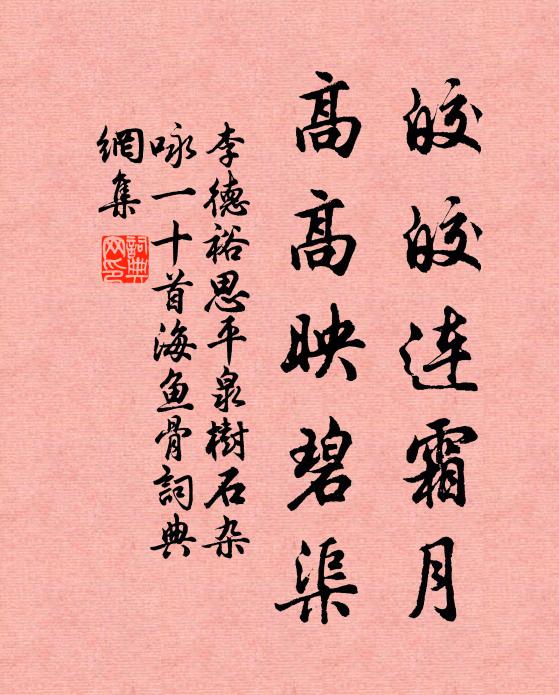 皎皎连霜月
高高映碧渠
李德裕思平泉樹石杂
咏一十首海鱼骨詞典
網集
詞典网印